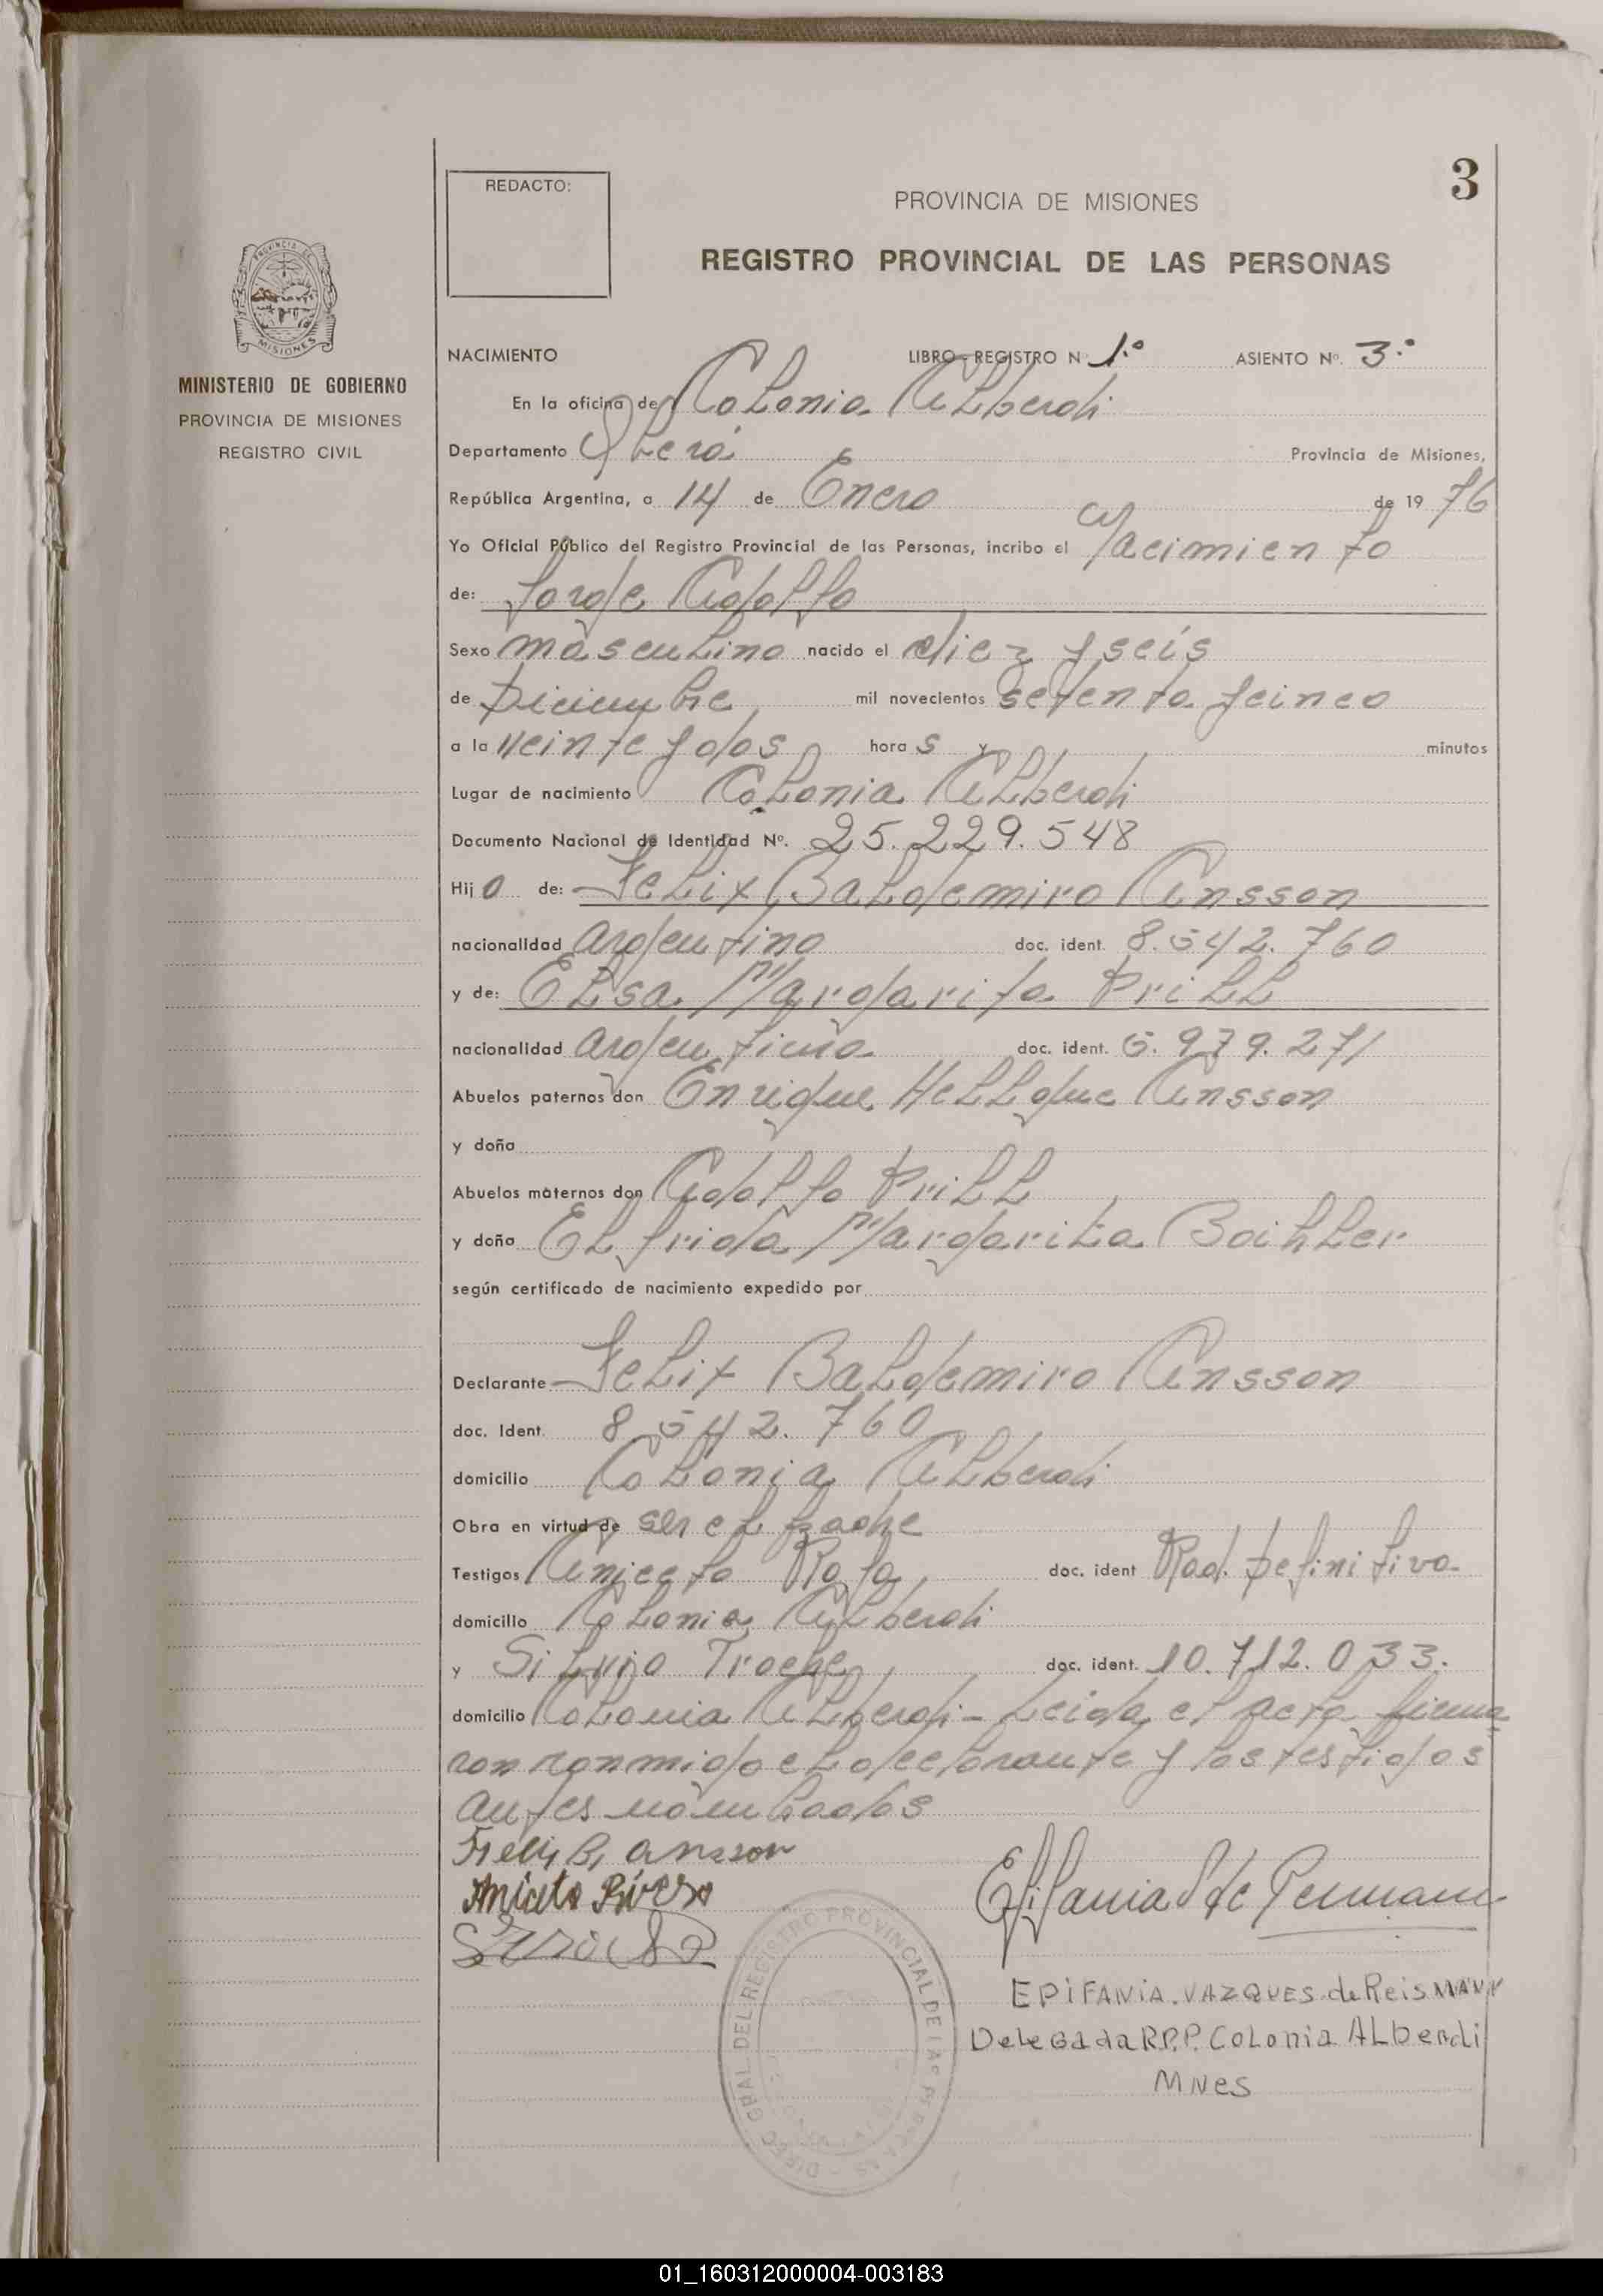 3
REDACTO:
PROVINCIA DE MISIONES
REGISTRO PROVINCIAL DE LAS PERSONAS
PROVINCIA DE
MISIONES
MINISTERIO DE GOBIERNO
PROVINCIA DE MISIONES
REGISTRO CIVIL
NACIMIENTO LIBRO-REGISTRO N 1.º ASIENTO Nº. 3.º
En la oficina de Colonia Alberdi
Departamento Oberá Provincia de Misiones,
República Argentina, a 14 de Enero de 19 76
Yo Oficial Público del Registro Provincial de las Personas, incribo el Nacimiento
de: Jorge Adolfo
Sexo masculino nacido el diez y seis
de Diciembre mil novecientos setenta y cinco
a la veinte y dos hora s y minutos
Lugar de nacimiento Colonia Alberdi
Documento Nacional de Identidad Nº. 25.229.548
Hij o de: Felix Baldemiro Ansson
nacionalidad argentino doc. ident. 8.542.760
y de: Elsa Margarita Prill
nacionalidad argentina doc. ident. 5.979.271
Abuelos paternos don Enrique Hellque Ansson
y doña
Abuelos maternos don Adolfo Prill
y doña Elfrida Margarita Boihler
según certificado de nacimiento expedido por
Declarante Felix Baldemiro Ansson
doc. Ident. 8.542.760
domicilio Colonia Alberdi
Obra en virtud de ser el padre
Testigos Aniceto doc. ident Rad. Definitiva
domicilio Colonia Alberdi
y Silvio Troche doc. ident. 10.712.033.
domicilio Colonia Alberdi - Leida el acta firma
ron conmigo el declarante y los testigos
antes nombrados
Felix B. Ansson
Aniceto
Epifania
EPIFANIA. VAZQUES de ReisMANN
Delegada R.P.P. Colonia ALberdi
MNes
GRAL DEL REGISTRO PROVINCIAL DE LAS PERSONAS
01_160312000004-003183